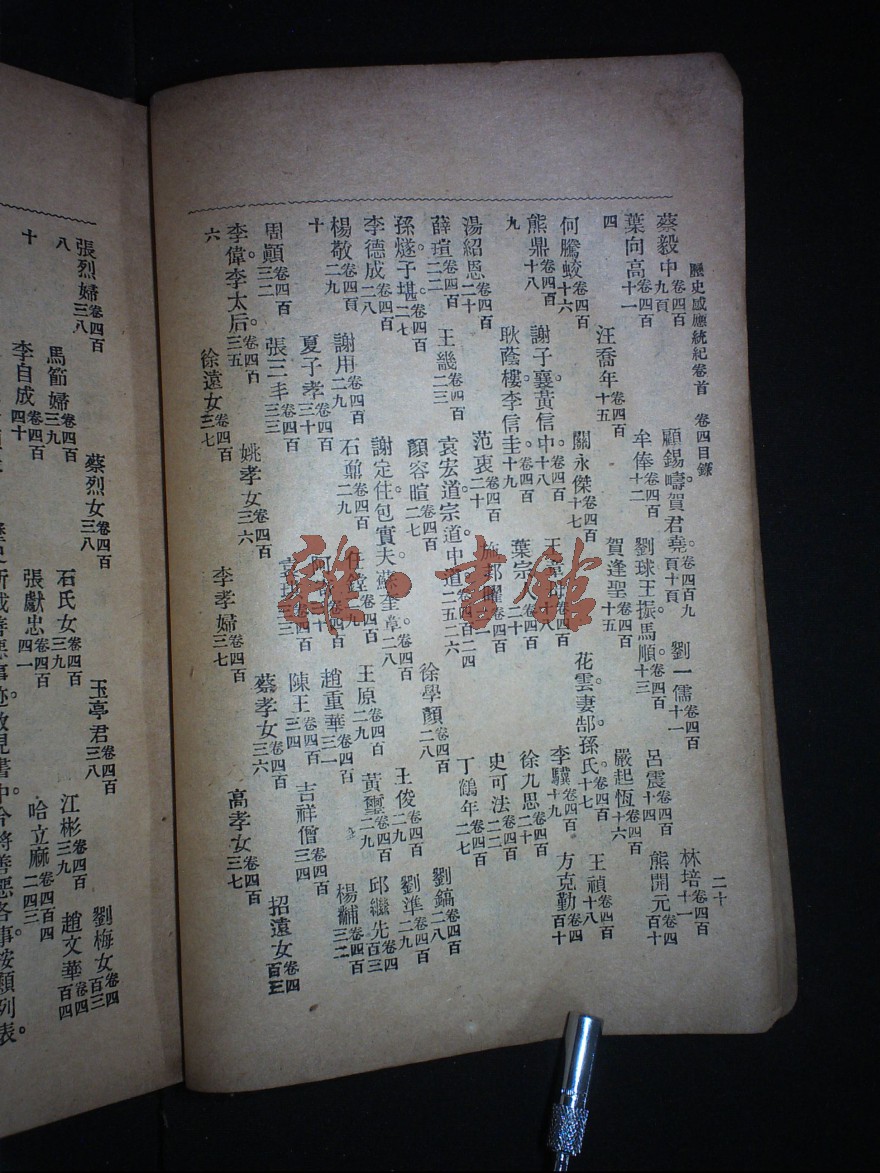 歷史感應統紀卷首　卷四目錄　二十
蔡毅中卷四百九頁　顧錫疇賀君堯。卷四百九頁十頁　劉一儒卷四百十一　林培卷四百十一
葉向高卷四百十一　牟俸卷四百十二　劉球王振馬順。卷四百十三　呂震卷四百十四　熊開元卷四百十
四　汪喬年卷四百十五　賀逢聖卷四百十五　嚴起恆卷四百十六
何騰蛟卷四百十六　關永傑卷四百十七　花雲妻郜孫氏。卷四百十七　王禎卷四百十八
熊鼎卷四百十八　謝子襄黃信中。卷四百十八　李驥卷四百十九　方克勤卷四百十
九　耿蔭樓。李信圭。卷四百十九　葉宗　卷四百二十　徐九思卷四百二十
湯紹恩卷四百二十　范衷卷四百二十　施邦曜　史可法卷四百二二
薛瑄卷四百二二　王畿卷四百二三　袁宏道宗道中道。卷四百二四二五二六　丁鶴年卷四百二七
孫燧子堪。卷四百二七　顏容暄卷四百二七　徐學顏卷四百二八　劉鎬卷四百二八
李德成卷四百二八　謝定住包實夫蘇奎章。卷四百二八　王俊卷四百二九　劉準卷四百二九
楊敬卷四百二九　謝用卷四百二九　石鼐卷四百二九　王原卷四百二九　黃璽卷四百二九　邱繼先卷四百三
十　夏子孝卷四百三十　趙重華卷四百三一　楊黼卷四百三二
周顛卷四百三二　張三丰卷四百三三　陳王卷四百三四　吉祥僧卷四百三四
李偉李太后。卷四百三五　姚孝女卷四百三六　蔡孝女卷四百三六　招遠女卷四百三
六　徐遠女卷四百三七　李孝婦卷四百三七　高孝女卷四百三七
張烈婦卷四百三八　蔡烈女卷四百三八　玉亭君卷四百三八　劉梅女卷四百三
八　馬節婦卷四百三九　石氏女卷四百三九　江彬卷四百三九　趙文華卷四百四
十　李自成卷四百四十　張獻忠卷四百四一　哈立麻卷四百四二四三
歷史所載善惡事跡散見書中今將善惡各事按類列表。
雜·書館